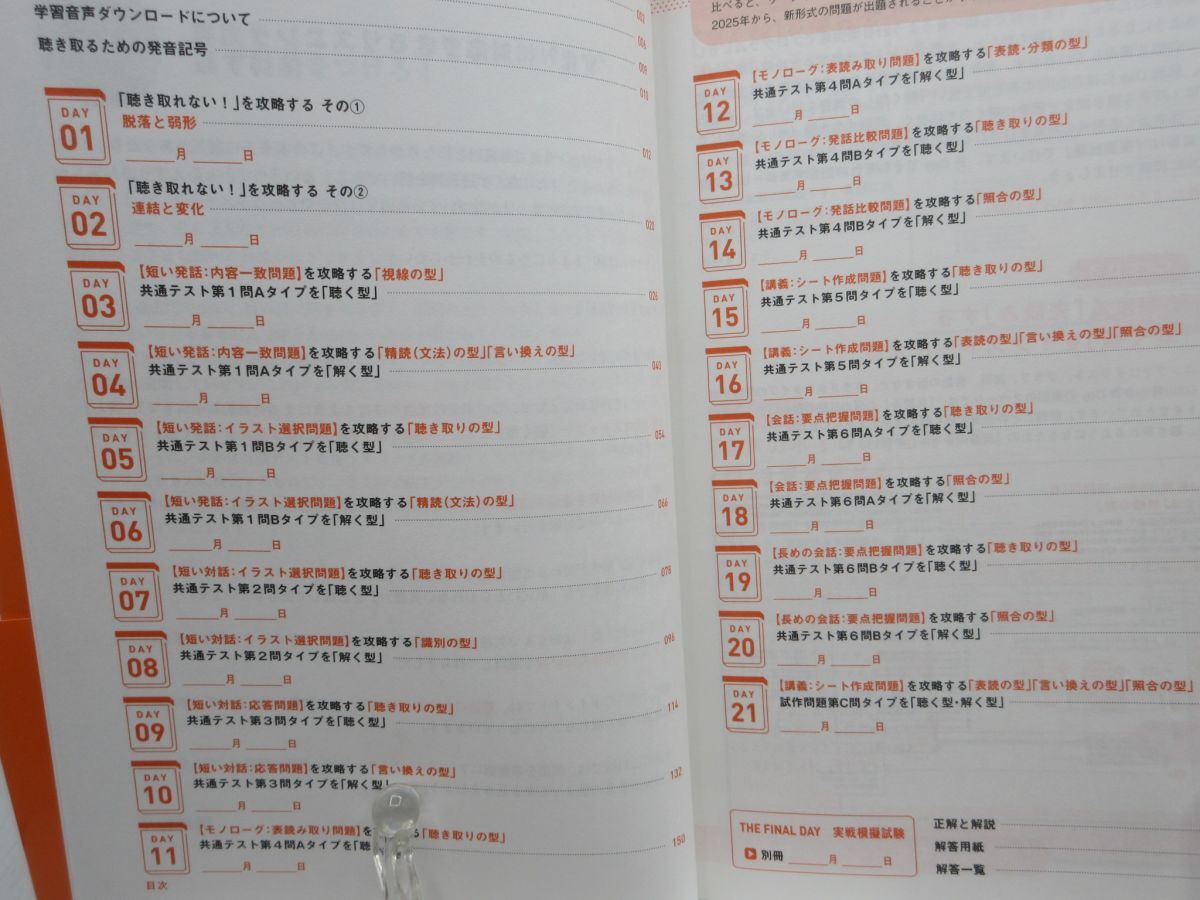 学習音声ダウンロードについて
006
聴き取るための発音記号
009
010
DAY 01
「聴き取れない！」を攻略する その①
脱落と弱形
012
月 日
DAY 02
「聴き取れない！」を攻略する その②
連結と変化
020
月 日
DAY 03
【短い発話：内容一致問題】を攻略する「視線の型」
共通テスト第1問Aタイプを「聴く型」
026
月 日
DAY 04
【短い発話：内容一致問題】を攻略する「精読（文法）の型」「言い換えの型」
共通テスト第1問Aタイプを「解く型」
040
月 日
DAY 05
【短い発話：イラスト選択問題】を攻略する「聴き取りの型」
共通テスト第1問Bタイプを「聴く型」
054
月 日
DAY 06
【短い発話：イラスト選択問題】を攻略する「精読（文法）の型」
共通テスト第1問Bタイプを「解く型」
066
月 日
DAY 07
【短い対話：イラスト選択問題】を攻略する「聴き取りの型」
共通テスト第2問タイプを「聴く型」
078
月 日
DAY 08
【短い対話：イラスト選択問題】を攻略する「識別の型」
共通テスト第2問タイプを「解く型」
096
月 日
DAY 09
【短い対話：応答問題】を攻略する「聴き取りの型」
共通テスト第3問タイプを「聴く型」
114
月 日
DAY 10
【短い対話：応答問題】を攻略する「言い換えの型」
共通テスト第3問タイプを「解く型」
132
月 日
DAY 11
【モノローグ：表読み取り問題】を する「聴き取りの型」
共通テスト第4問Aタイプを「聴
150
月 日
目次
2025年から、新形式の問題が出題されること
DAY 12
【モノローグ：表読み取り問題】を攻略する「表読・分類の型」
共通テスト第4問Aタイプを「解く型」
月 日
DAY 13
【モノローグ：発話比較問題】を攻略する「聴き取りの型」
共通テスト第4問Bタイプを「聴く型」
月 日
DAY 14
【モノローグ：発話比較問題】を攻略する「照合の型」
共通テスト第4問Bタイプを「解く型」
月 日
DAY 15
【講義：シート作成問題】を攻略する「聴き取りの型」
共通テスト第5問タイプを「聴く型」
月 日
DAY 16
【講義：シート作成問題】を攻略する「表読の型」「言い換えの型」「照合の型」
共通テスト第5問タイプを「解く型」
月 日
DAY 17
【会話：要点把握問題】を攻略する「聴き取りの型」
共通テスト第6問Aタイプを「聴く型」
月 日
DAY 18
【会話：要点把握問題】を攻略する「照合の型」
共通テスト第6問Aタイプを「解く型」
月 日
DAY 19
【長めの会話：要点把握問題】を攻略する「聴き取りの型」
共通テスト第6問Bタイプを「聴く型」
月 日
DAY 20
【長めの会話：要点把握問題】を攻略する「照合の型」
共通テスト第6問Bタイプを「解く型」
月 日
DAY 21
【講義：シート作成問題】を攻略する「表読の型」「言い換えの型」「照合の型」
試作問題第C問タイプを「聴く型・解く型」
月 日
THE FINAL DAY 実戦模擬試験
別冊 月 日
正解と解説
解答用紙
解答一覧